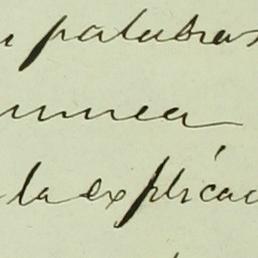 palabras
nunca
la explicac